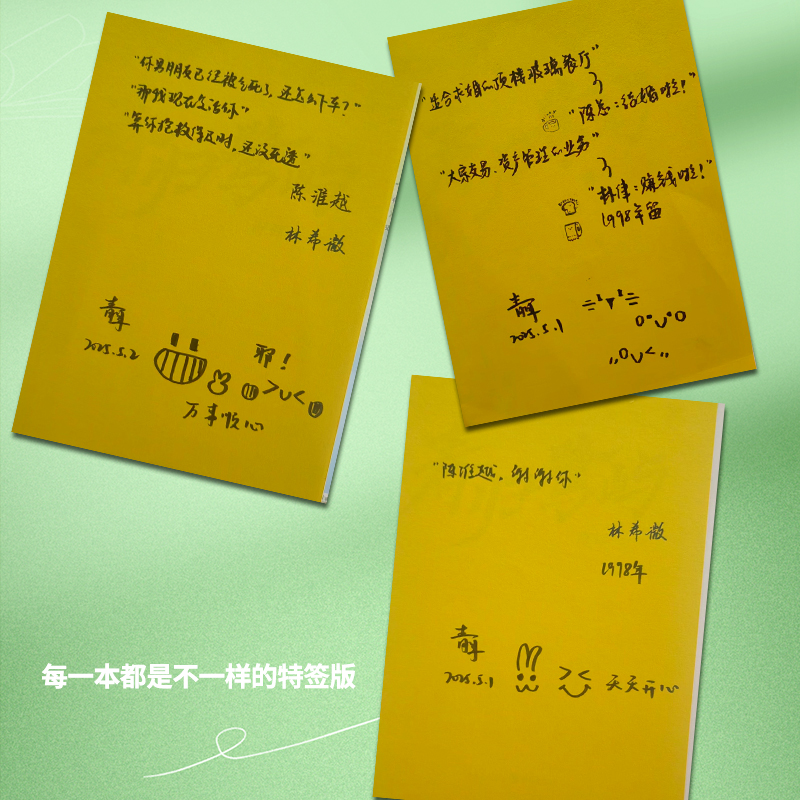 "你男朋友已经被気死了，还怎么下车？"
"那我现在复活你"
"算你抢救得及时，还没死透"
陈淮越
林希微
2025.5.2
耶！
万事顺心
"适合求婚的顶楼玻璃餐厅"
"陈总：结婚啦！"
"大宗交易、资产管理的业务"
"林律：赚钱啦！"
1998年留
2025.5.1
"陈淮越，谢谢你"
林希微
1998年
2025.5.1
天天开心
每一本都是不一样的特签版